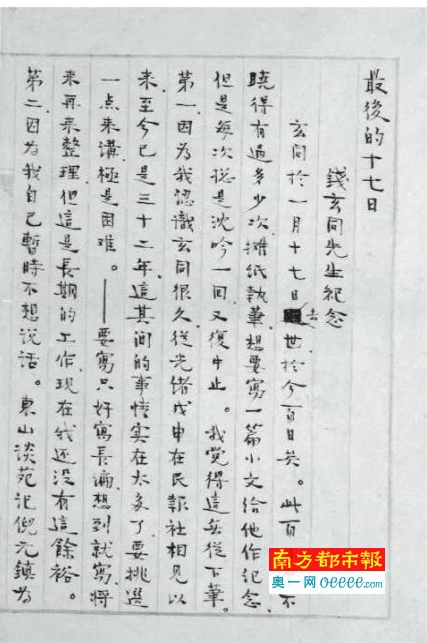 最後的十七日
錢玄同先生紀念
玄同於一月十七日去世、於今百日矣。此百不
曉得有過多少次、攤紙執筆、想要寫一篇小文給他作紀念、
但是每次總是沈吟一回、又復中止。我覺得這無從下筆。
第一、因為我認識玄同很久、從光緒戊申在民報社相見以
來、至今已是三十二年、這其間的事情實在太多了、要挑選
一点來講、極是困难。——要寫只好寫長編、想到就寫、將
来再来整理、但這是長期的工作、現在我还沒有這餘裕。
第二、因为我自己暫時不想说话。東山談苑记倪元鎮为
南方都市報
奥一网 oeeee.com